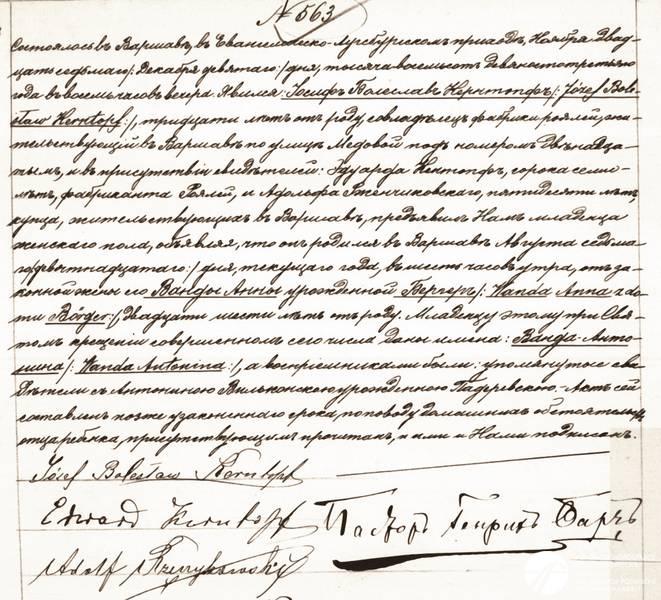 № 563
Состоялось въ Варшавѣ, въ Евангелическо-Аугсбургскомъ приходѣ, Ноября двад-
цать седьмаго /: Декабря девятаго :/ дня, тысяча восемьсотъ девяносто третьяго
года въ восемь часовъ вечера. Явился: Іосифъ Болеславъ Кернтопфъ /: Józef Bole-
sław Kerntopf :/, тридцати лѣтъ отъ роду совладѣлецъ фабрики роялей, жи-
тельствующій въ Варшавѣ по улицѣ Медовой подъ номеромъ двѣнадца-
тымъ, и въ присутствіи свидѣтелей: Эдуарда Кентопфъ, сорока семи
лѣтъ, фабриканта Роялей, и Адольфа Рженчиковскаго, пятидесяти лѣтъ,
купца, жительствующихъ въ Варшавѣ, предъявилъ Намъ младенца
женскаго пола, объявляя, что онъ родился въ Варшавѣ Августа седьма-
го /: девятнадцатаго :/ дня, текущаго года, въ шесть часовъ утра, отъ за-
конной жены его Ванды Анны урожденной Бергеръ /: Wanda Anna z do-
mu Börger :/, двадцати шести лѣтъ отъ роду. Младенцу этому при Свя-
томъ крещеніи совершенномъ сего числа даны имена: Ванда-Анто-
нина /: Wanda Antonina :/, а воспріемниками были: упомянутые сви-
дѣтели съ Антониною Вильконскою урожденною Падеревскою. Актъ сей
составленъ позже узаконеннаго срока, по поводу домашнихъ обстоятельствъ
отца ребенка, присутствующимъ прочитанъ, и ими и Нами подписанъ.
Józef Bolesław Kerntopf
Edward Kerntopf Пасторъ Генрихъ Бартъ
Adolf Rzęczykowski